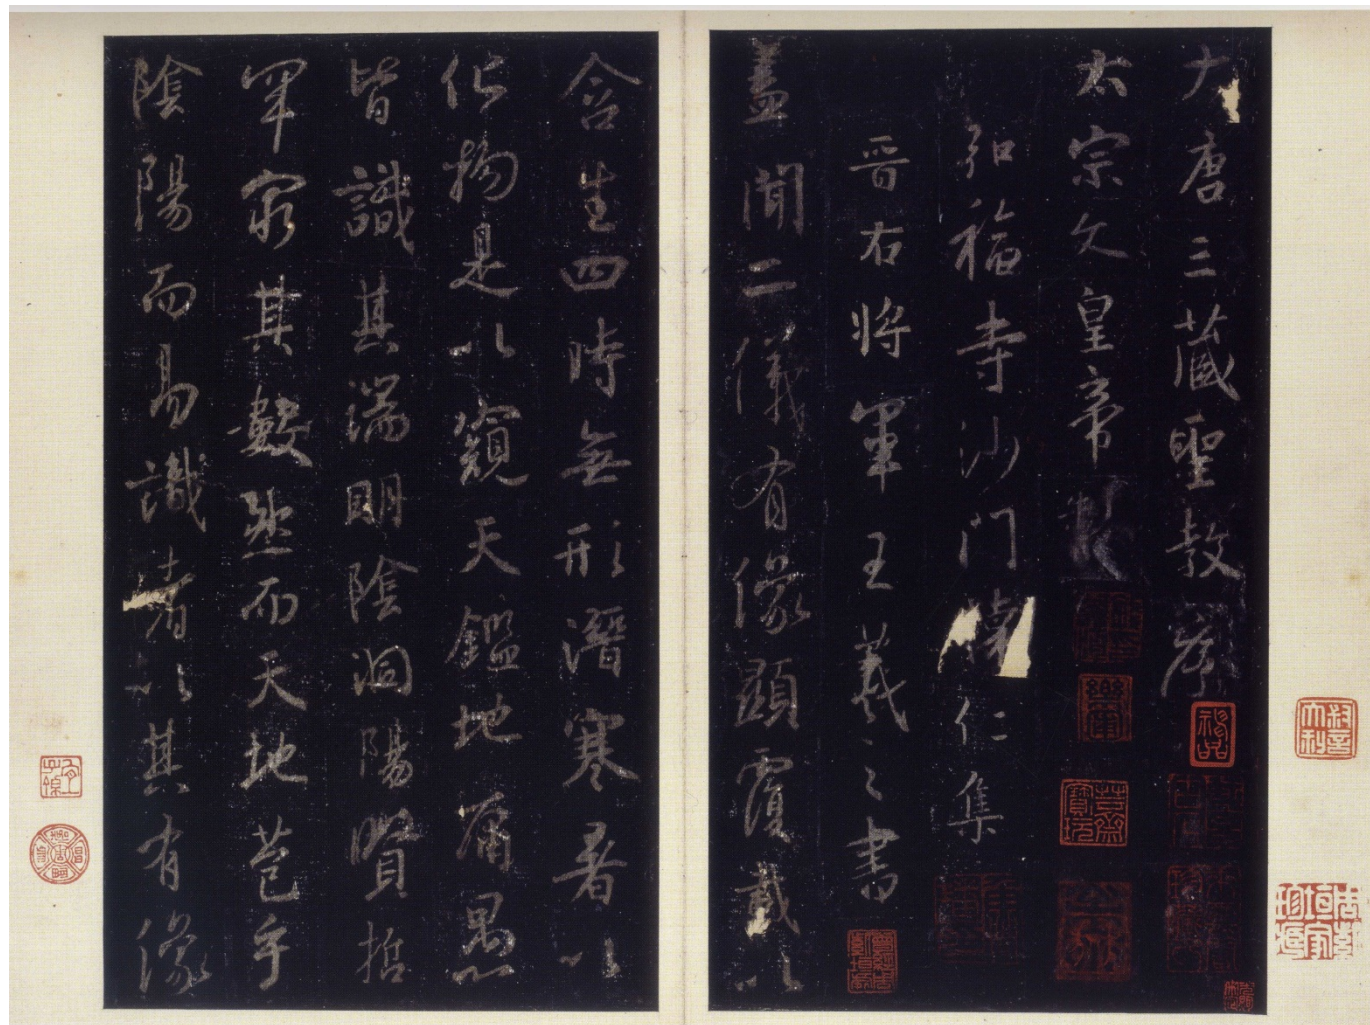 大唐三藏聖教序
太宗文皇帝
弘福寺沙門懷仁集
晉右將軍王羲之書
蓋聞二儀有像顯覆載以
含生四時無形潛寒暑以
化物是以窺天鑑地庸愚
皆識其端明陰洞陽賢哲
罕窮其數然而天地苞乎
陰陽而易識者以其有像
神品